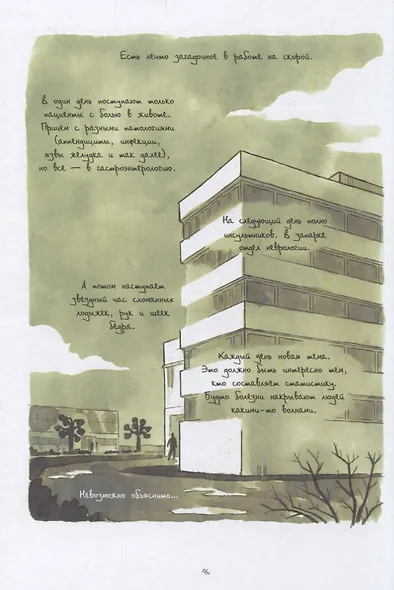 Есть нечто загадочное в работе на скорой.
В один день поступают только
пациенты с болью в животе.
Причем с разными патологиями
(аппендициты, инфекции,
язвы желудка и так далее),
но все — в гастроэнтерологию.
На следующий день полно
инсультников. В запарке
отдел неврологии.
А потом наступает
звездный час сломанных
лодыжек, рук и шеек
бедра.
Каждый день новая тема.
Это должно быть интересно тем,
кто составляет статистику.
Будто болезни накрывают людей
какими-то волнами.
Невозможно объяснить...